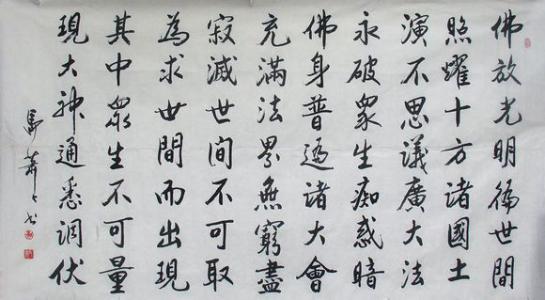 佛放光明徧世間
照耀十方諸國土
演不思議廣大法
永破衆生痴惑暗
佛身普遍諸大會
充滿法界無窮盡
寂滅世間不可取
為求世間而出現
其中衆生不可量
現大神通悉調伏
馬